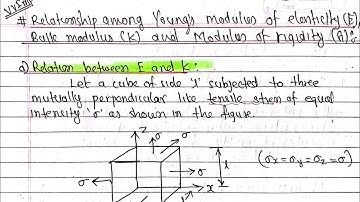 V.V.Imp
# Relationship among Young's modulus of elasticity (E),
Bulk modulus (K) and Modulus of rigidity (G):
a) Relation between E and K:
Let a cube of side 'l' subjected to three
mutually perpendicular like tensile stress of equal
intensity 'σ' as shown in the figure.
z
σ
σ
l
(σx=σy=σz=σ)
σ
x